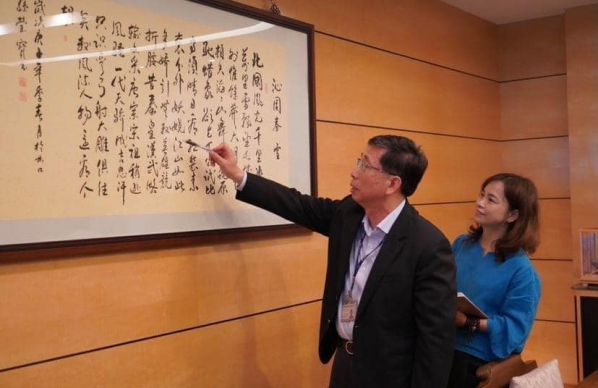 沁園春 雪
北國風光千里冰
萬里雪飄望長
外惟餘莽莽大
頓失滔滔山舞 原
馳蠟象欲與天公試比
高須晴日看紅裝素
裹分外妖嬈江山如此
多嬌引無數英雄競
折腰惜秦皇漢武略
輸文采唐宗宋祖稍遜
風騷一代天驕成吉思汗
只識彎弓射大雕俱往
矣數風流人物還看今
朝
歲次庚 年季春月於
孫瑩寶